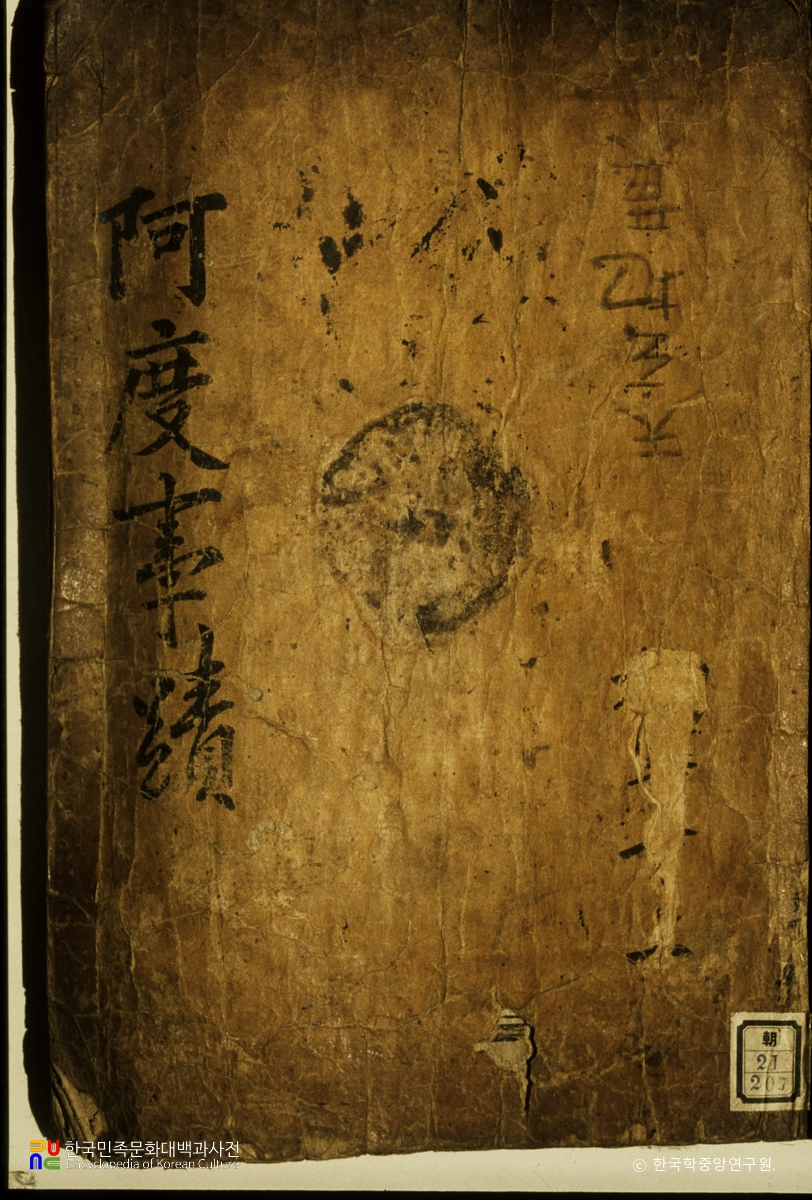 阿度事蹟
天玄地黃
朝
21
207
한국민족문화대백과사전
Encyclopedia of Korean Culture
© 한국학중앙연구원.